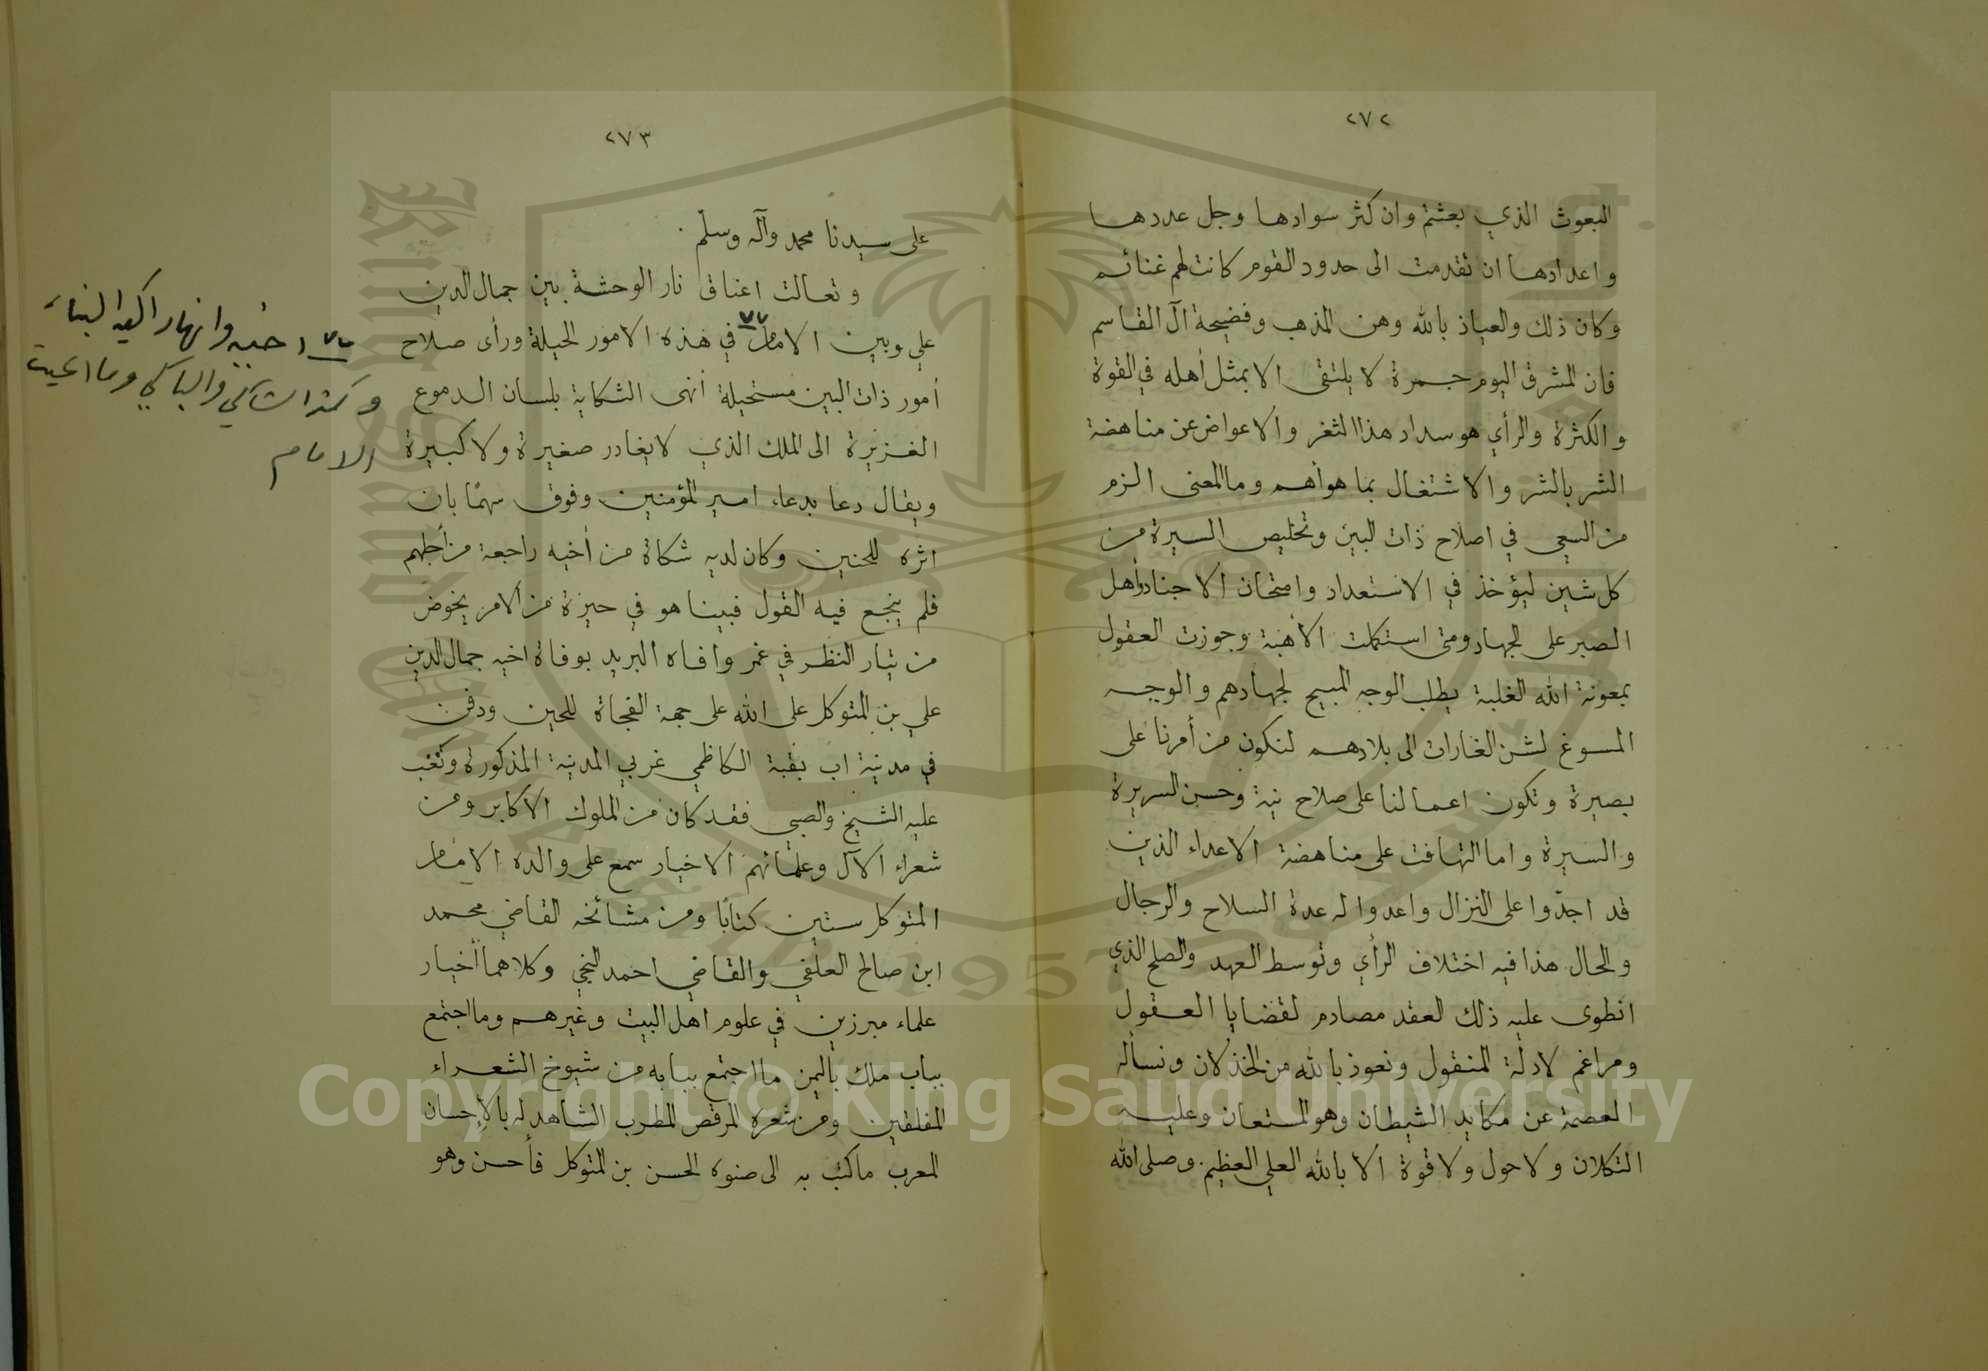 ٢٧٢
البعوث الذي بعثتم وان كثر سوادها وجل عددها
واعدادها ان تقدمت الى حدود القوم كانت لهم غنائم
وكان ذلك والعياذ بالله وهن المذهب وفضيحة آل القاسم
فان المشرق اليوم جمرة لا يلتقى الا بمثل أهله في القوة
والكثرة والرأي هو سداد هذا الثغر والاعواض عن مناهضة
الشر بالشر والاشتغال بما هو أهم وما المعنى الزم
من السعي في اصلاح ذات البين وتخليص السيرة من
كل شين ليؤخذ في الاستعداد وامتحان الاجناد وأهل
الصبر على الجهاد ومتى استكملت الأهبة وجوزت العقول
بمعونة الله الغلبة يطلب الوجه المبيح لجهادهم والوجه
المسوغ لشن الغارات الى بلادهم لنكون من أمرنا على
بصيرة وتكون اعمالنا على صلاح نية وحسن السريرة
والسيرة واما التهافت على مناهضة الاعداء الذين
قد اجدّوا على النزال واعدوا له عدة السلاح والرجال
والحال هذا فيه اختلاف الرأي وتوسط العهد والصلح الذي
انطوى عليه ذلك العقد مصادم لقضايا العقول
ومراغم لادلة المنقول ونعوذ بالله من الخذلان ونسأله
العصمة عن مكايد الشيطان وهو المستعان وعليه
التكلان ولا حول ولا قوة الا بالله العلي العظيم. وصلى الله
٢٧٣
على سيدنا محمد وآله وسلّم.
وتعالت اعناق نار الوحشة بين جمال الدين
علي وبين الامام في هذه الامور الحيلة ورأى صلاح
أمور ذات البين مستحيلة أنهى الشكاية بلسان الدموع
الغزيرة الى الملك الذي لا يغادر صغيرة ولا كبيرة
ويقال دعا بدعاء امير المؤمنين وفوق سهمًا بان
اثره للحنين وكان لديه شكاة من أخيه راجعة من أجلهم
فلم ينجع فيه القول فبينا هو في حيزة من الامر يخوض
من تيار النظر في غمر وافاه البريد بوفاة اخيه جمال الدين
علي بن المتوكل على الله على جهة الفجاة للحين ودفن
في مدينة اب بقبة الكاظمي غربي المدينة المذكورة وتعب
عليه الشيخ والصبي فقد كان من الملوك الأكابر ومن
شعراء الآل وعلمائهم الاخيار سمع على والده الامام
المتوكل ستين كتابًا ومن مشائخه القاضي محمد
ابن صالح العلفي والقاضي احمد النجي وكلاهما أخيار
علماء مبرزين في علوم اهل البيت وغيرهم وما اجتمع
بباب ملك باليمن ما اجتمع ببابه من شيوخ الشعراء
المفلقين ومن شعره المرقص المطرب الشاهد له بالإحسان
المعرب ما كتب به الى صنوه الحسن بن المتوكل فأحسن وهو
الشاكي والباكي وما
الامام
Copyright © King Saud University
1957